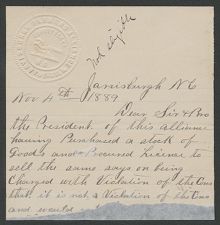 Not eligible
Jarvisburgh N C
Nov 4th 1889
Dear Sir & Bro
the President of this Alliance
having Purchased a stock of
Goods and Procured license to
sell the same says on being
Charged with Violation of the Cons
that it is not a Violation of the Cons
and would